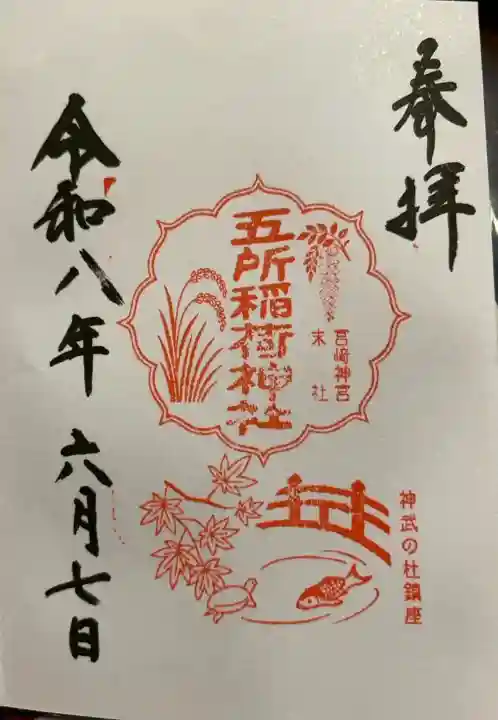 奉拝
五所稲荷神社
宮崎神宮
末社
神武の杜鎮座
令和八年六月七日